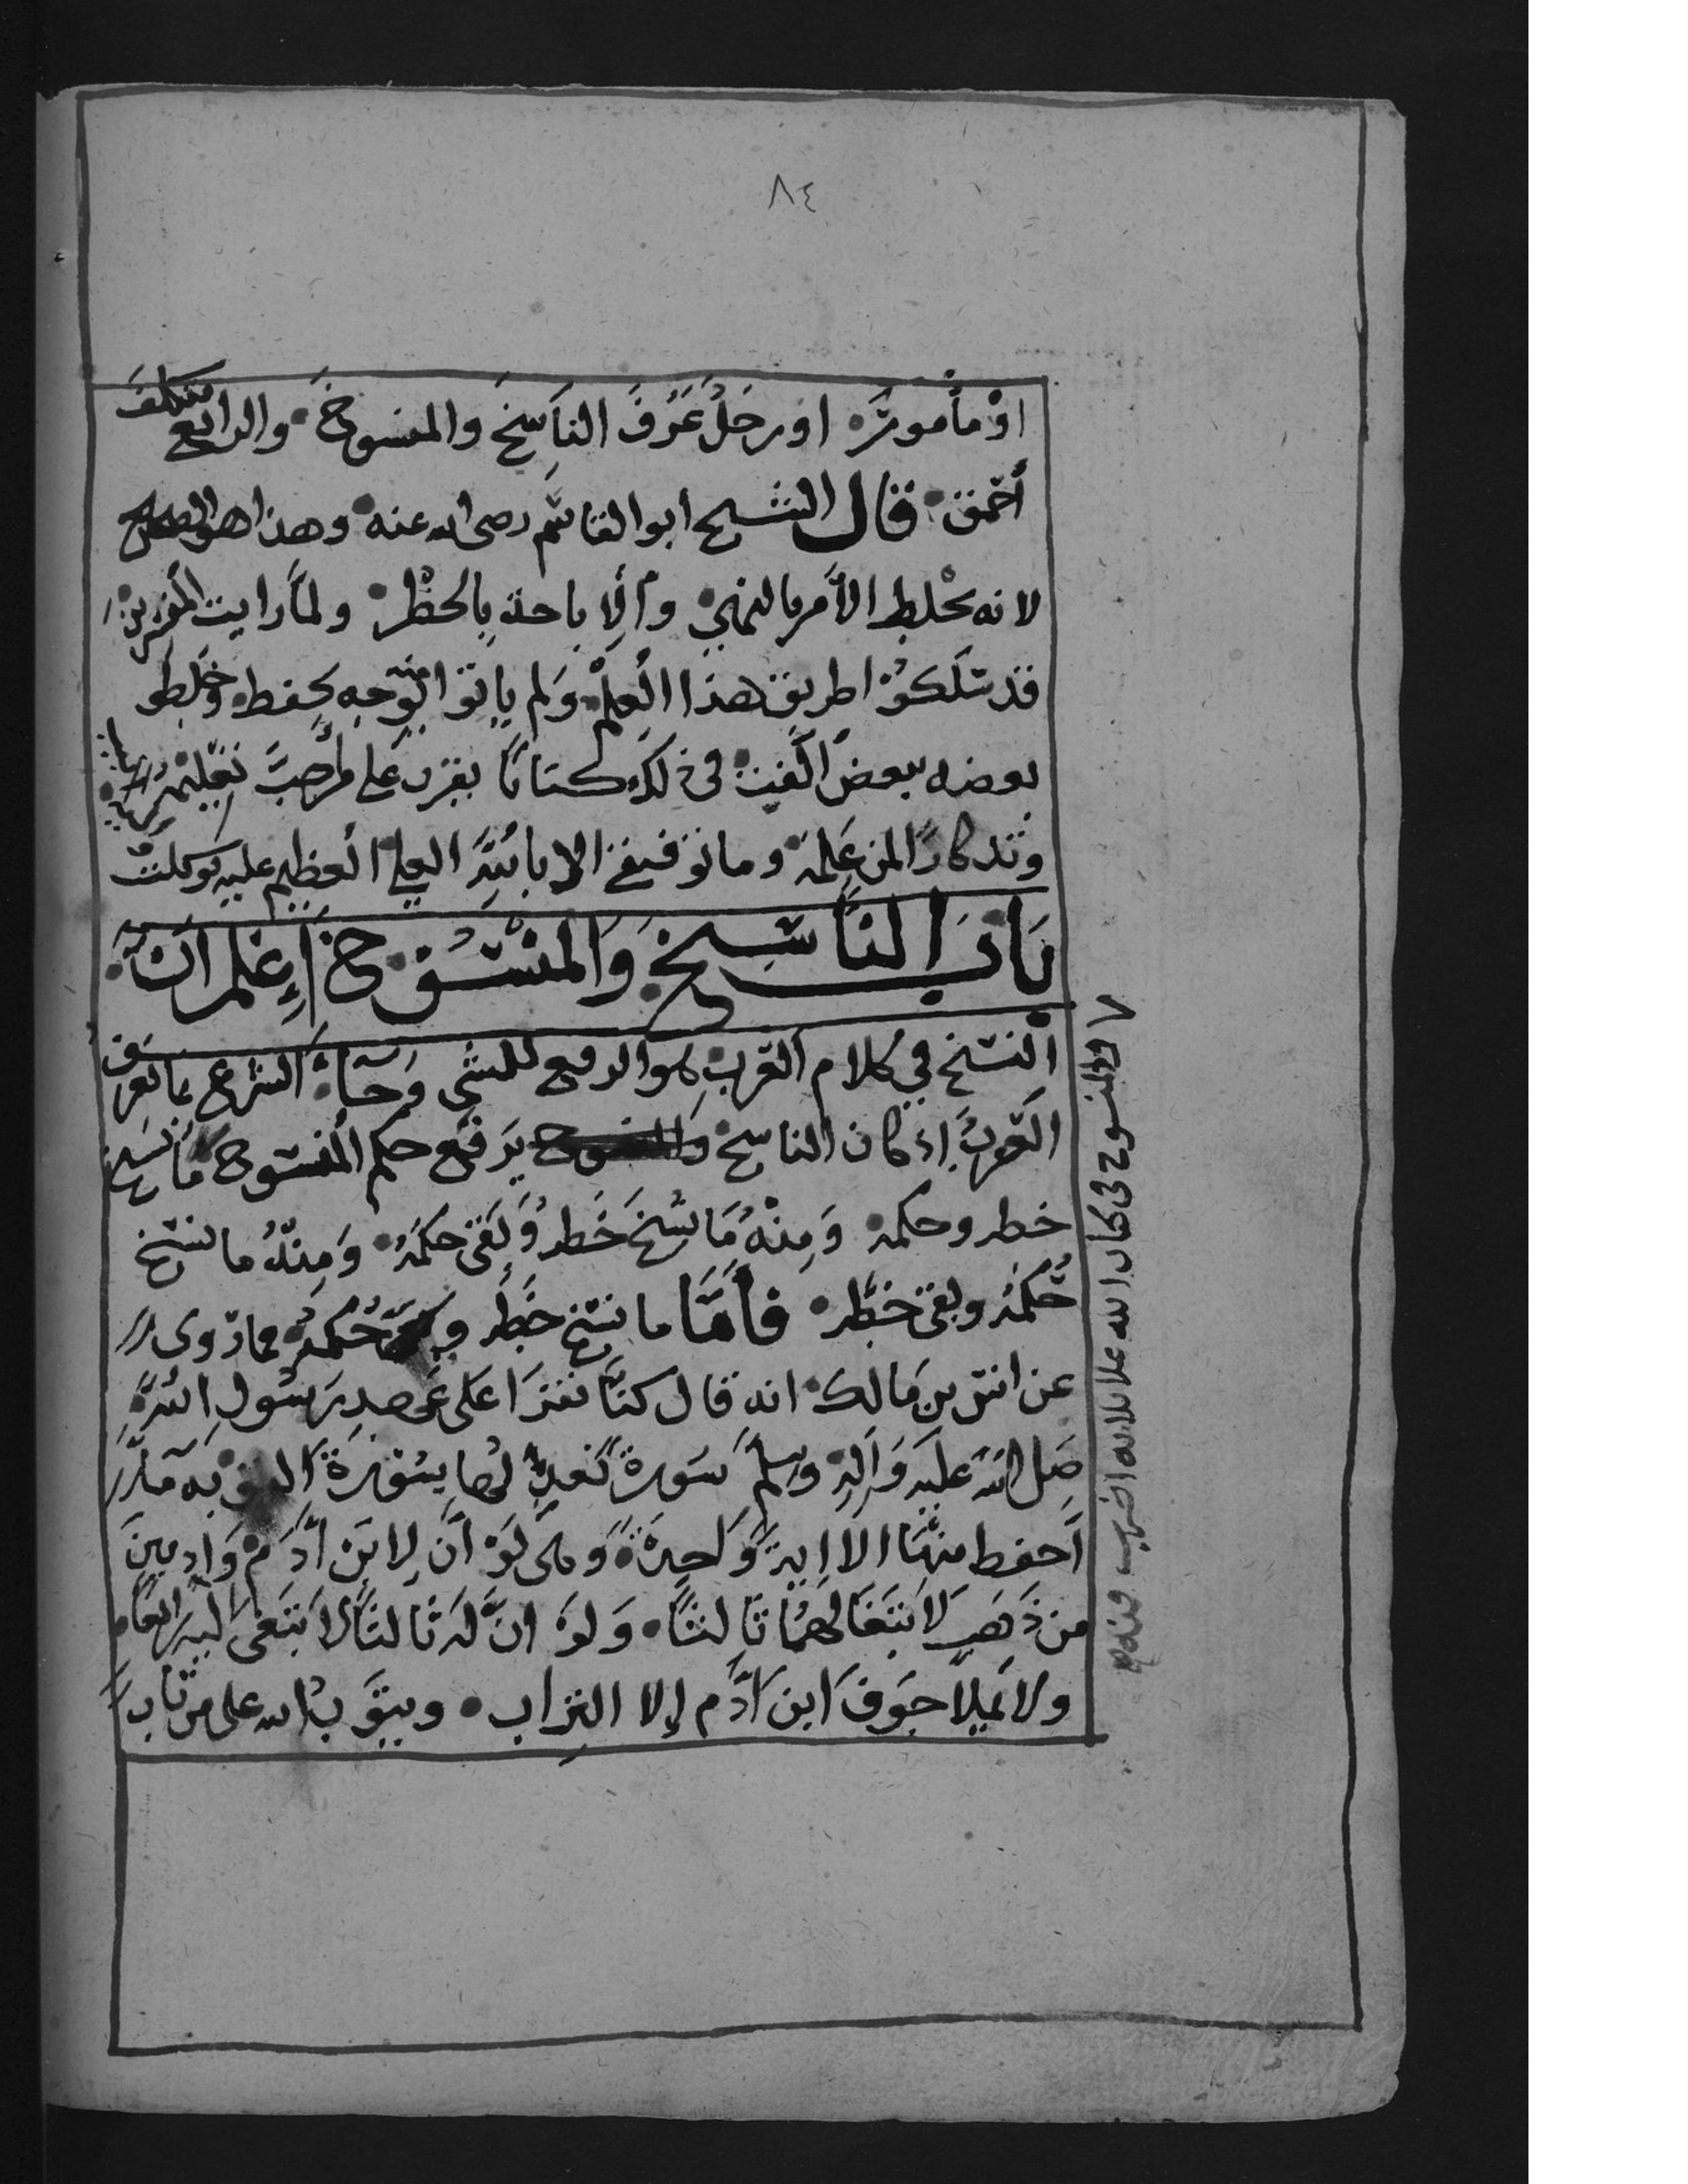 ٨٤
اوْ مأموتره اورجلُ عَرَفَ النَاسِخَ والمنسوخَ والرابع متكلف
أحمق قال الشيخ ابوالقاسم رضى الله عنه وهذا هو الصحيح
لانه يخلط الأمر بالنهي والإباحة بالحظر ولمّا رايت المفسرين
قد سَلَكوُا طريق هذا العِلْم وَلم ياتوا منه بوجه يحفظ وخلطو
بعضه ببعض الّفت فى ذلك كتابا يقرب على من احبّ تعليمه
وتذكارًا لمن عَلِمَه وما توفيقي الا بالله العلي العظيم عليه توكلت
بَابُ النَّاسِخ وَالمنْسُوخ إِعْلَم انّ
النسْخ فِي كلام العَرب هو الرفع للشي وَجآءَ الشرع بما تعرف
العَربُ اذ كان الناسخ والمنسوخ يَرفَع حكم المنسوخ مَا نسخ
خطه وحكمه وَمِنْهُ مَا نُسِخَ خَطه وَبَقى حكمَهُ وَمِنهُ ما نسخ
حُكمَهُ وبقى خطّه فأمَّا ما نسخ خَطه وبقى حُكمه فما رَوى
عن انس بن مَالك انه قال كنّا نقرَا على عَهدِ رَسُولِ اللهِ
صَلى الله عَليْهِ وَآلِهِ وسلم سَورةً نعدِلها بِسُورَةَ التوبه مآ
أحفظ منْهَا الا ايةً وَاحِدَةً وَهى لَوْ اَنّ لِابْن ادَم وَادِيينَ
من ذَهَبٍ لابتَغَا لهُما ثالثًا وَلوَ انَّ لهَ ثَالثًا لابتَغى اليه رابعًا
ولا يَملأ جَوفَ ابن ادَم إلا التراب ويتوَبُ الله على من تابَ
والمنسوخ فى كتاب الله على ثلاثه اضرب فمنه